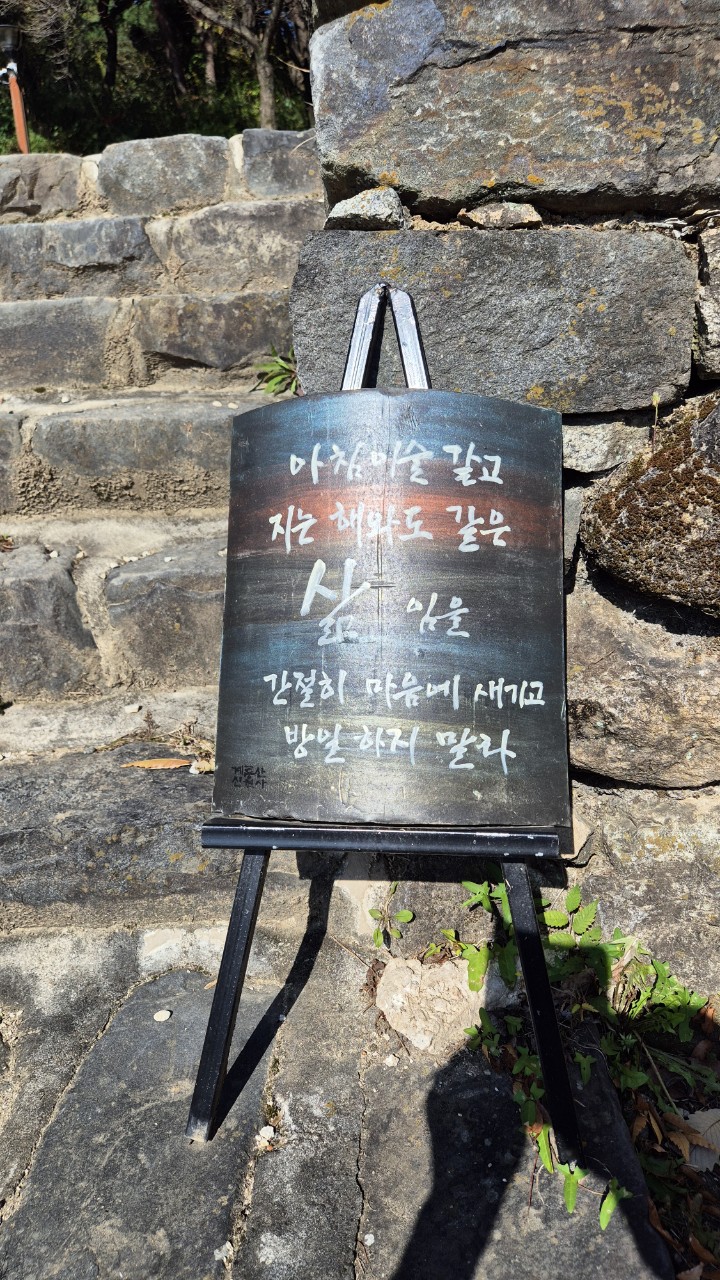 아침이슬 같고
지는 해와도 같은
삶 임을
간절히 마음에 새기고
방일 하지 말라
계룡산
신원사